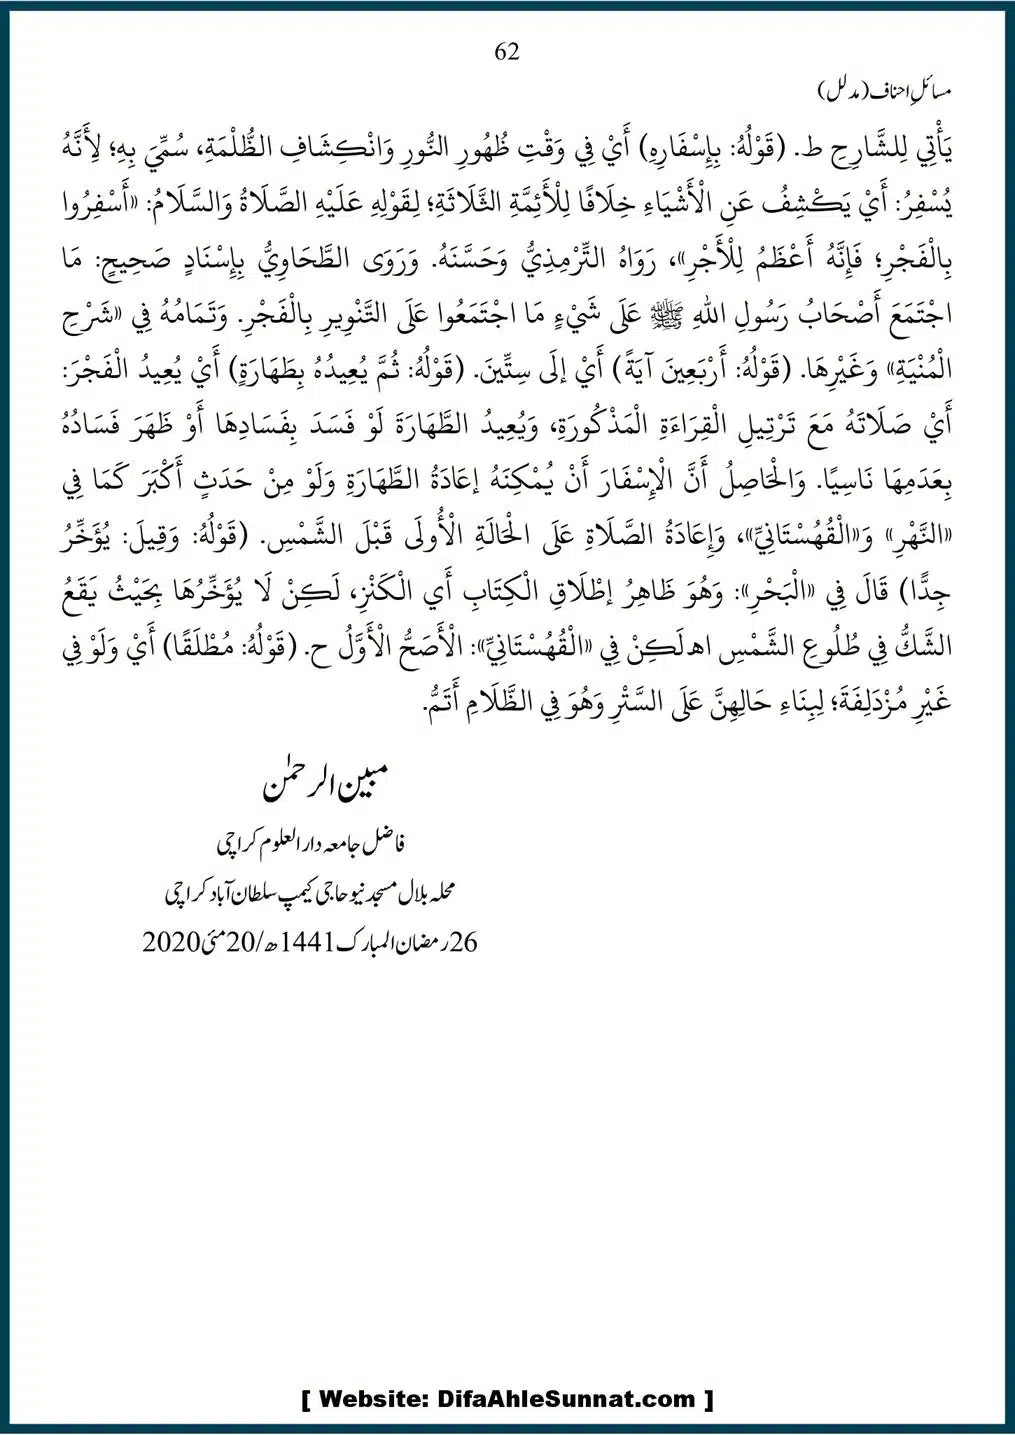 62
مسائلِ احناف (مدلل)
يَأْتِي لِلشَّارِحِ ط. (قَوْلُهُ: بِإِسْفَارِهِ) أَيْ فِي وَقْتِ ظُهُورِ النُّورِ وَانْكِشَافِ الظُّلْمَةِ، سُمِّيَ بِهِ؛ لِأَنَّهُ
يُسْفِرُ: أَيْ يَكْشِفُ عَنِ الْأَشْيَاءِ خِلَافًا لِلْأَئِمَّةِ الثَّلَاثَةِ؛ لِقَوْلِهِ عَلَيْهِ الصَّلَاةُ وَالسَّلَامُ: «أَسْفِرُوا
بِالْفَجْرِ؛ فَإِنَّهُ أَعْظَمُ لِلْأَجْرِ»، رَوَاهُ التِّرْمِذِيُّ وَحَسَّنَهُ. وَرَوَى الطَّحَاوِيُّ بِإِسْنَادٍ صَحِيحٍ: مَا
اجْتَمَعَ أَصْحَابُ رَسُولِ اللهِ ﷺ عَلَى شَيْءٍ مَا اجْتَمَعُوا عَلَى التَّنْوِيرِ بِالْفَجْرِ. وَتَمَامُهُ فِي «شَرْحِ
الْمُنْيَةِ» وَغَيْرِهَا. (قَوْلُهُ: أَرْبَعِينَ آيَةً) أَيْ إلَى سِتِّينَ. (قَوْلُهُ: ثُمَّ يُعِيدُهُ بِطَهَارَةٍ) أَيْ يُعِيدُ الْفَجْرَ:
أَيْ صَلَاتَهُ مَعَ تَرْتِيلِ الْقِرَاءَةِ الْمَذْكُورَةِ، وَيُعِيدُ الطَّهَارَةَ لَوْ فَسَدَ بِفَسَادِهَا أَوْ ظَهَرَ فَسَادُهُ
بِعَدَمِهَا نَاسِيًا. وَالْحَاصِلُ أَنَّ الْإِسْفَارَ أَنْ يُمْكِنَهُ إعَادَةُ الطَّهَارَةِ وَلَوْ مِنْ حَدَثٍ أَكْبَرَ كَمَا فِي
«النَّهْرِ» وَ«الْقُهُسْتَانِيِّ»، وَإِعَادَةُ الصَّلَاةِ عَلَى الْحَالَةِ الْأُولَى قَبْلَ الشَّمْسِ. (قَوْلُهُ: وَقِيلَ: يُؤَخِّرُ
جِدًّا) قَالَ فِي «الْبَحْرِ»: وَهُوَ ظَاهِرُ إطْلَاقِ الْكِتَابِ أَيِ الْكَنْزِ، لَكِنْ لَا يُؤَخِّرُهَا بِحَيْثُ يَقَعُ
الشَّكُّ فِي طُلُوعِ الشَّمْسِ اهـ لَكِنْ فِي «الْقُهُسْتَانِيِّ»: الْأَصَحُّ الْأَوَّلُ ح. (قَوْلُهُ: مُطْلَقًا) أَيْ وَلَوْ فِي
غَيْرِ مُزْدَلِفَةَ؛ لِبِنَاءِ حَالِهِنَّ عَلَى السَّتْرِ وَهُوَ فِي الظَّلَامِ أَتَمُّ.
مبین الرحمٰن
فاضل جامعہ دارالعلوم کراچی
محلہ بلال مسجد نیو حاجی کیمپ سلطان آباد کراچی
26 رمضان المبارک 1441ھ/20 مئی 2020
[ Website: DifaAhleSunnat.com ]